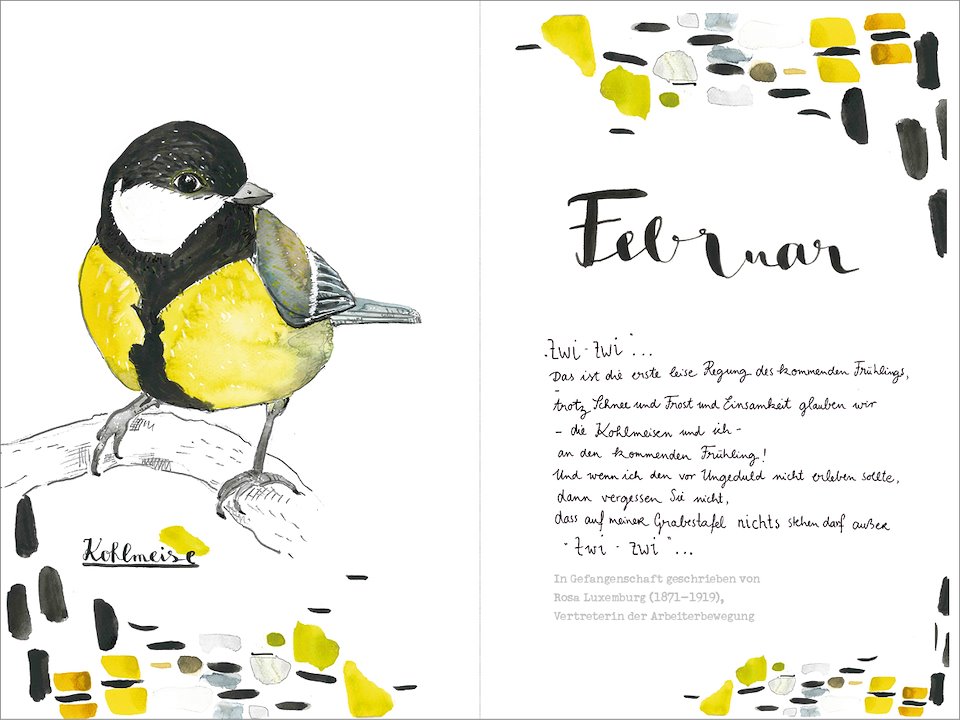 Kohlmeise
Februar
"zwi - zwi" ...
Das ist die erste leise Regung des kommenden Frühlings,
trotz Schnee und Frost und Einsamkeit glauben wir
- die Kohlmeisen und ich -
an den kommenden Frühling!
Und wenn ich den vor Ungeduld nicht erleben sollte,
dann vergessen Sie nicht,
dass auf meiner Grabestafel nichts stehen darf außer
"zwi - zwi" ...
In Gefangenschaft geschrieben von
Rosa Luxemburg (1871-1919),
Vertreterin der Arbeiterbewegung